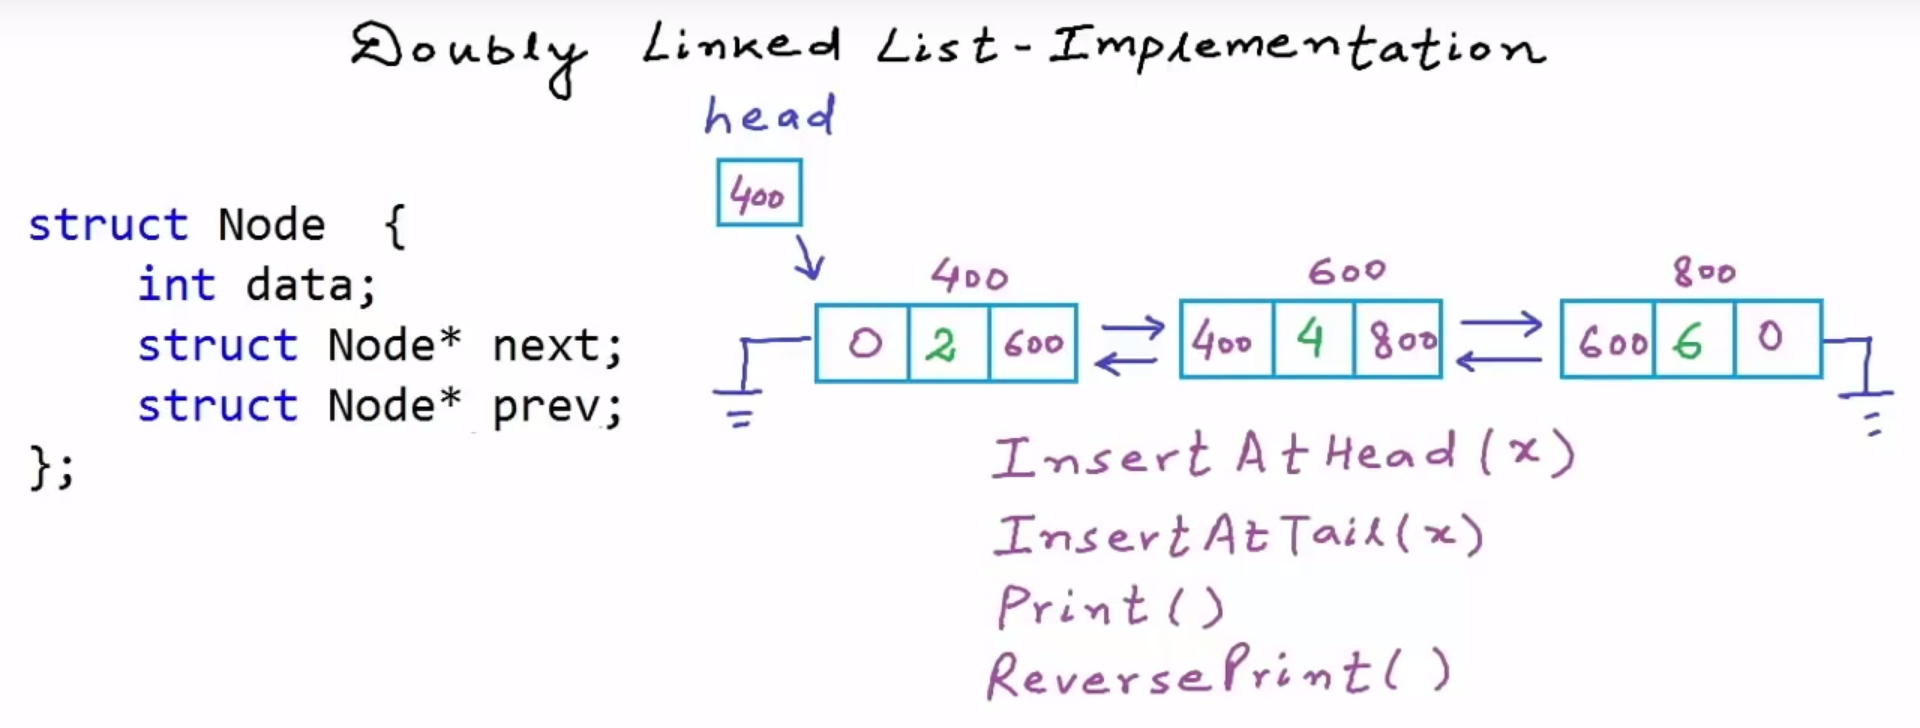 Doubly Linked List - Implementation
head
400
struct Node {
int data;
struct Node* next;
struct Node* prev;
};
400 600 800
0 2 600 400 4 800 600 6 0
InsertAtHead(x)
InsertAtTail(x)
Print()
ReversePrint()